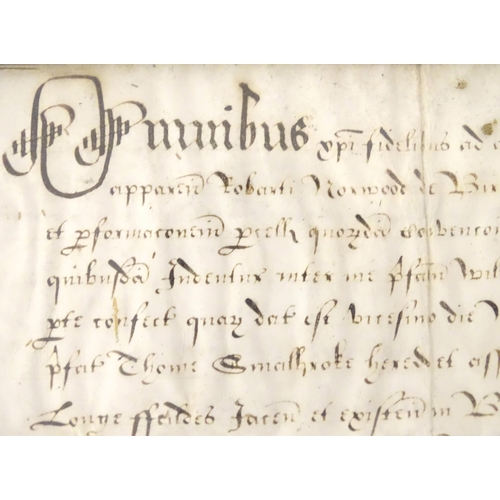 Omnibus xpi fidelibus ad
apparen Robarti Norwood de
et pformaconem pcell quorzda
quibusda Indentur inter me pfatu Wil
pte confect quaz dat est vicesimo die
pfat Thome Smalbroke hered et ass
Longe ffeildes Jacen et existen in B